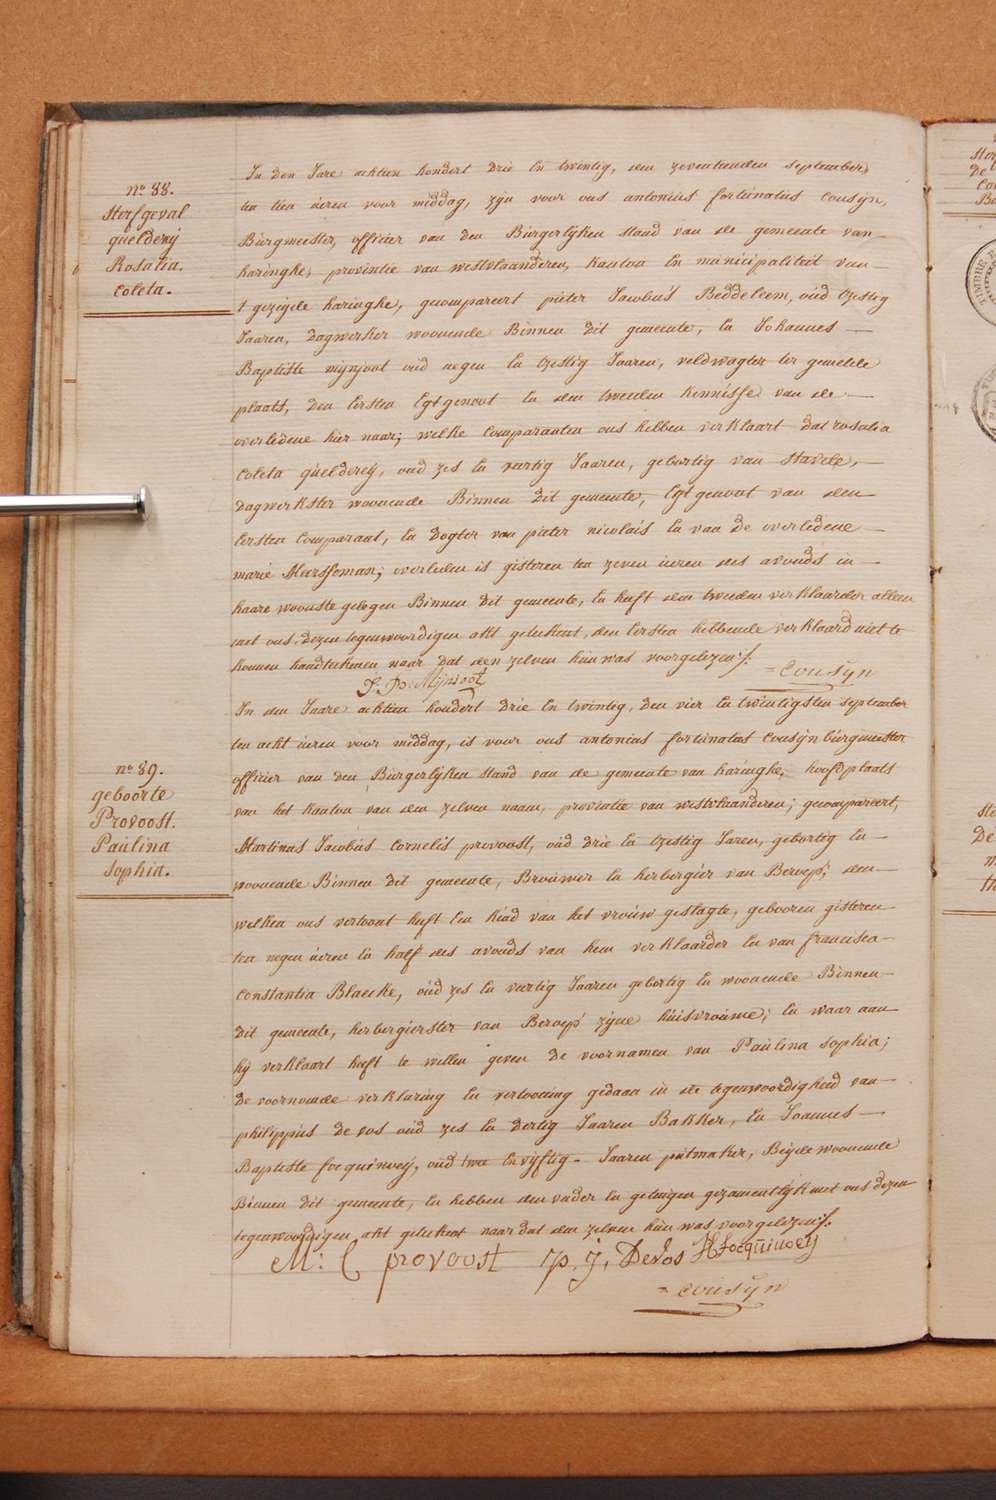 nº 88.
Sterfgeval
queldereij
Rosalia.
Coleta.
In den Jare achtien hondert drie en twintig, den zeventienden september,
ten tien uren voor middag, zijn voor ons antonius fortunatus Cousijn,
Burgmeester, officier van den Burgerlijken stand van de gemeente van
haringhe, provintie van westvlaanderen, kanton en municipaliteit van
t gezijde haringhe, gecompareert pieter Jacobus Beddeleem, oud tzestig
Jaaren, dagwerker woonende Binnen dit gemeente, en Johannes
Baptiste mijnjoot oud negen en tzestig Jaaren, veldwagter ter gemelde
plaats, den Eersten Egtgenoot en den tweeden kennisse van de
overledene hier naar; welke Comparanten ons hebben verklaart dat rosalia
Coleta queldereij, oud zes en veertig Jaaren, gebortig van stavele,
dagwerkster woonende Binnen dit gemeente, Egtgenoot van den
Eersten Comparant, en Dogter van pieter nicolais en van de overledene
marie Merssoman; overleden is gisteren ten zeven uren des avonds in
haare woonste gelegen Binnen dit gemeente, en heeft den tweeden verklaarder alleen
met ons dezen tegenwoordigen akt geteekent, den Eersten hebbende verklaard niet te
konnen handteekenen naar dat den zelven hun was voorgelezen /.
J. B. Mijnjoot
= Cousijn
nº 89.
geboorte
Provoost.
Paulina
Sophia.
In den Jaare achtien hondert drie en twintig, den vier en twintigsten september
ten acht uren voor middag, is voor ons antonius fortunatus Cousijn burgmeester
officier van den Burgerlijken stand van de gemeente van haringhe, hoofdplaats
van het kanton van den zelven naam, provintie van westvlaanderen; gecompareert,
Martinus Jacobus Cornelis provoost, oud drie en tzestig Jaren, gebortig en
woonende Binnen dit gemeente, Brouwer en herbergier van Beroep, den
welken ons vertoont heeft Een kind van het vrouw geslagte, gebooren gisteren
ten negen uren en half des avonds van hem verklaarder en van francisca
Constantia Blaeke, oud zes en veertig Jaaren gebortig en woonende Binnen
dit gemeente, herbergierster van Beroep zijne huisvrouwe; en waar aan
hij verklaart heeft te willen geven de voornamen van Paulina Sophia;
de voornoemde verklaring en vertooning gedaan in de tegenwoordigheid van
philippus de vos oud zes en dertig Jaaren Bakker, en Joannes
Baptiste focquinoeij, oud twee en vijftig Jaaren putmaker, Beijde woonende
Binnen dit gemeente, en hebben den vader en getuigen gezamentlijk met ons dezen
tegenwoordigen akt geteekent naar dat den zelven hun was voorgelezen /.
M: C provoost p. j. Devos focquinoeij
= Cousijn